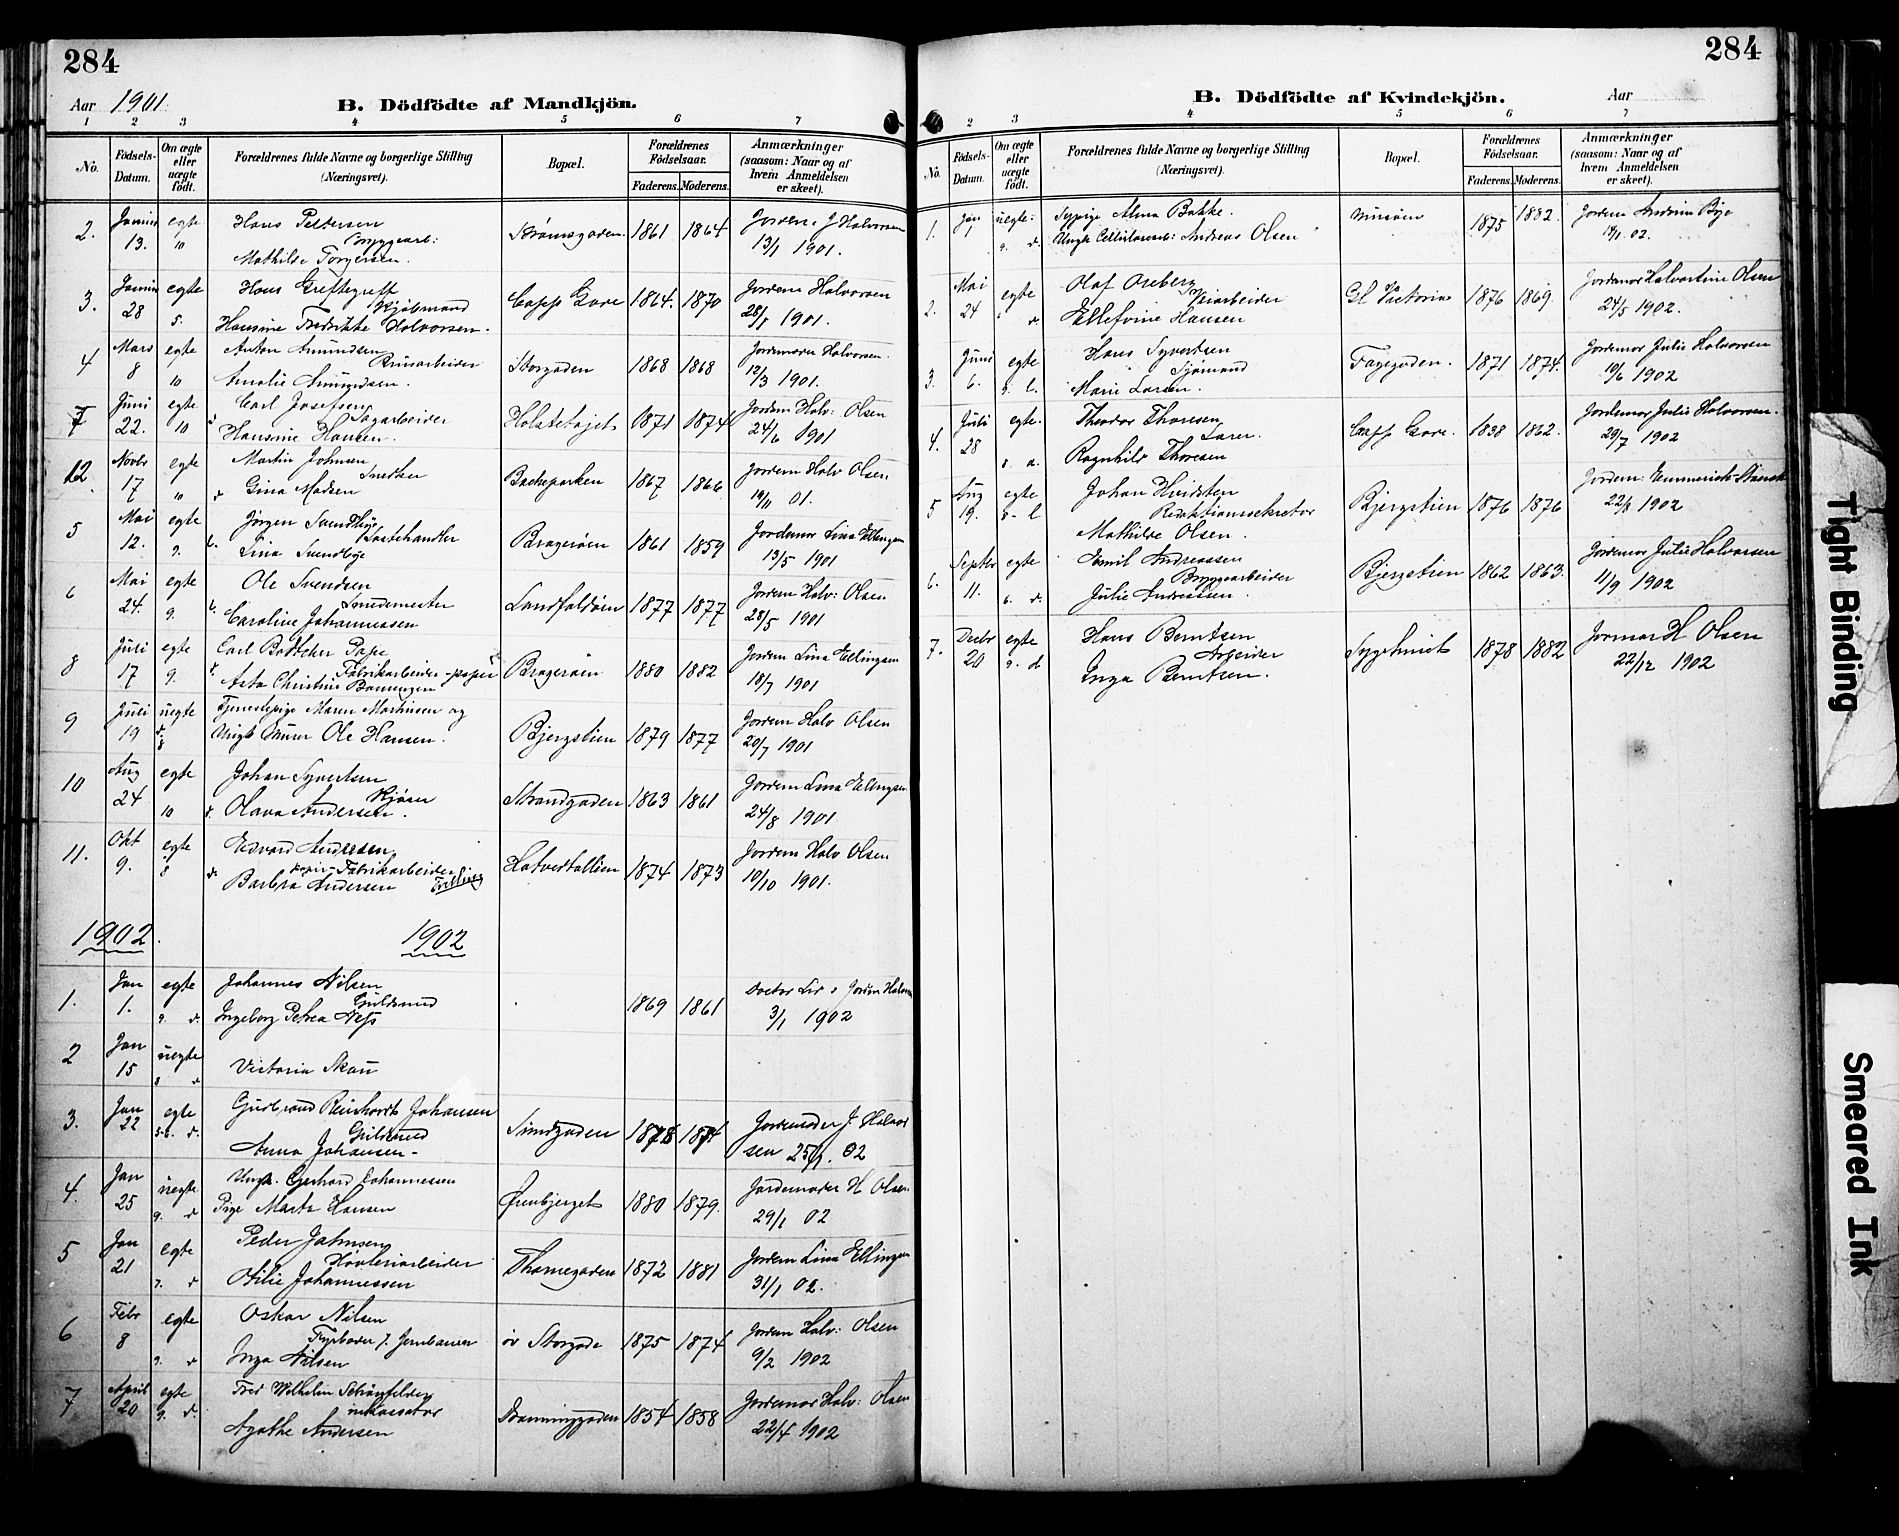 284
Aar 1901.
B. Dödfödte af Mandkjön.
1 2 3 4 5 6 7
No.
Födsels-Datum.
Om ægte eller uægte födt.
Forældrenes fulde Navne og borgerlige Stilling (Næringsvei).
Bopæl.
Forældrenes Födselsaar.
Faderens. Moderens.
Anmærkninger (saasom: Naar og af hvem Anmeldelsen er skeet).
2. 13. egte 10 Hans Pettersen
Bryggearb:
Mathilde Torgersen. 1861 1864 Jordem. J. Halvorsen
13/1 1901.
3. 28 egte 5. Hans
Kjøbmand
Hansine Fredrikke Halvorsen. Capp Gare 1864. 1870 Jordem Halvorsen
28/1 1901.
4 Mars 8 egte 10 Anton Amundsen
Amalie Amundsen. Storgaden 1868 1868 Halvorsen.
12/3 1901.
7 Juni 22. egte 10 Carl Josefsen
Sagarbeider
Hansine Hansen. 1871 1874 Jordem Halv: Olsen
24/6 1901
12. Novbr 17 egte 10 Martin Johnsen
Snedker
Gina Madsen Backeparken 1867 1866 Jordem Halv Olsen
19/11 01.
5 Mai 12. egte 9. Jørgen Svendbye
Lina Svendbye Bragerøen 1861 1859 Jordemor Lina Ellingsen
13/5 1901
6 Mai 24. egte 9. Ole Svendsen
Smedemester
Caroline Johannessen Landfaldøen 1877 1877 Jordem Halv: Olsen
28/5 1901
8 Juli 17 egte 9. Carl Bøttcher Pape
Fabrikarbeider - papir
Asta Christine Bragerøen 1880 1882 Jordem Lina Ellingsen
18/7 1901
9 Juli 19 uegte 8 Tjenestepige Maren Martinsen og
Ungk Murer Ole Hansen. Bjergstien 1879 1877 Jordem Halv Olsen
20/7 1901
10 Aug 24 egte 10 Johan Syvertsen
Olava Andersen. Strandgaden 1863 1861 Jordem Lina Ellingsen
24/8 1901
11. Okt 9. egte 8 Edvard Andersen
papir-Fabrikarbeider
Barbra Andersen Tvilling 1874 1873 Jordem Halv Olsen
10/10 1901.
1902. 1902
1. Jan 1. egte 9. d. Johannes Nilsen
Guldsmed
Ingeborg Petrea 1869 1861 Doctor
3/1 1902
2 Jan 15 uegte 8 d Victoria Skau
3. Jan 22 egte 5-6. d. Gudbrand Reinhardt Johansen
Guldsmed
Anna Johansen - Sundgaden Jordemoder J. Halvor
sen 25/1. 02
4. Jan 25 uegte 9. d Ungk. Gerhard Johannessen
Pige Marta Hansen Ørenbjerget 1880 1879. Jordemoder H Olsen.
29/1 02
5 Jan 21 egte 7. d Peder Johnsen
Høvleriarbeider
Otilie Johannessen Thomegaden 1872 1881 Jordem Lina Ellingsen
31/1 02.
6 Febr 8 egte 9. d Oskar Nilsen
Fyrbøder v. Jernbanen
Inga Nilsen øv Storgade 1875 1874 Jordem Halv: Olsen
9/2 1902
7 April 20 egte 9. d. Fred Wilhelm Schønfelder
inkassator
Agathe Andersen 1854 1858 Jordemor Halv: Olsen
22/4 1902
284
B. Dödfödte af Kvindekjön.
Aar
2 3 4 5 6 7
No.
Födsels-Datum.
Om ægte eller uægte födt.
Forældrenes fulde Navne og borgerlige Stilling (Næringsvei).
Bopæl.
Forældrenes Födselsaar.
Faderens. Moderens.
Anmærkninger (saasom: Naar og af hvem Anmeldelsen er skeet).
1. Jan 1 uegte: 9. d. Sypige Alma Bakke.
Ungk Cellulosearb: Andreas Olsen 1875 1882. Jordem Andrine Bye
02.
2. Mai 24 egte d. Olaf Aseberg
Ellefine Hansen Gl Victoria 1876 1869. Jordemor Halvardine Olsen
24/5 1902.
3. Juni 6. egte 9. l. Hans Syvertsen
Sjømand
Marie Larsen. Fagegaden. 1871 1874. Jordemor Julie Halvorsen
10/6 1902
4. Juli 28 egte. Theodor Thoresen
Ragnhild Thoresen Capp Gare. 1838 1862. Jordemor Julie Halvorsen.
29/7 1902
5 Aug 19. egte 8- l Johan Hvidsten
Redaktionssekretær
Mathilde Olsen. Bjergstien 1876 1876 Jordem:
22/8 1902
6. Septbr 11. egte 6. d. Emil Andreassen
Bryggearbeider
Julie Andreassen. Bjergstien 1862 1863. Jordemor Julie Halvorsen
11/9 1902
7. Decbr 20 egte 9. d Hans Berntsen
Arbeider
Inga Berntsen. Sygehuset 1878 1882 Jormor H Olsen
22/12 1902
Tight Binding
Smeared Ink